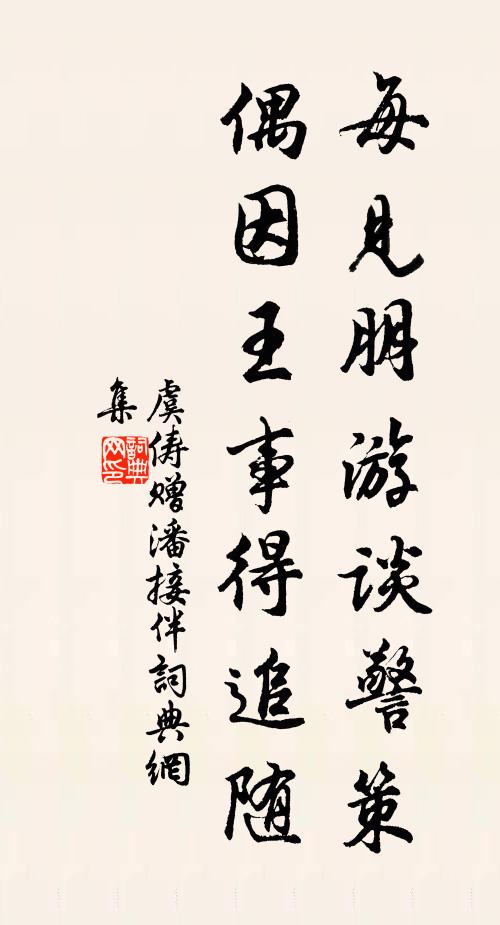 每见朋游谈警策
偶因王事得追随
虞俦赠潘接伴詞典網
集
詞典
网印